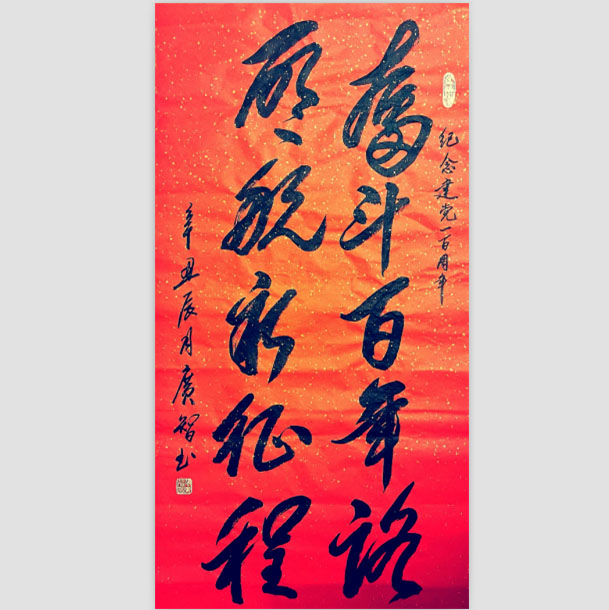 纪念建党一百周年
奋斗百年路
启航新征程
辛丑辰月廣智书